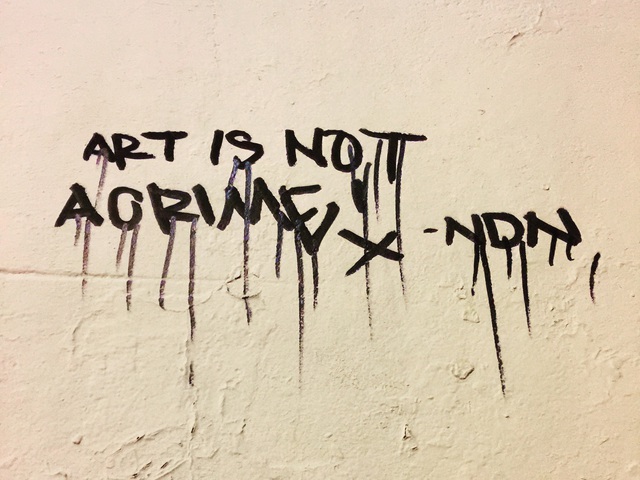 ART IS NOT
A CRIME X -NDN